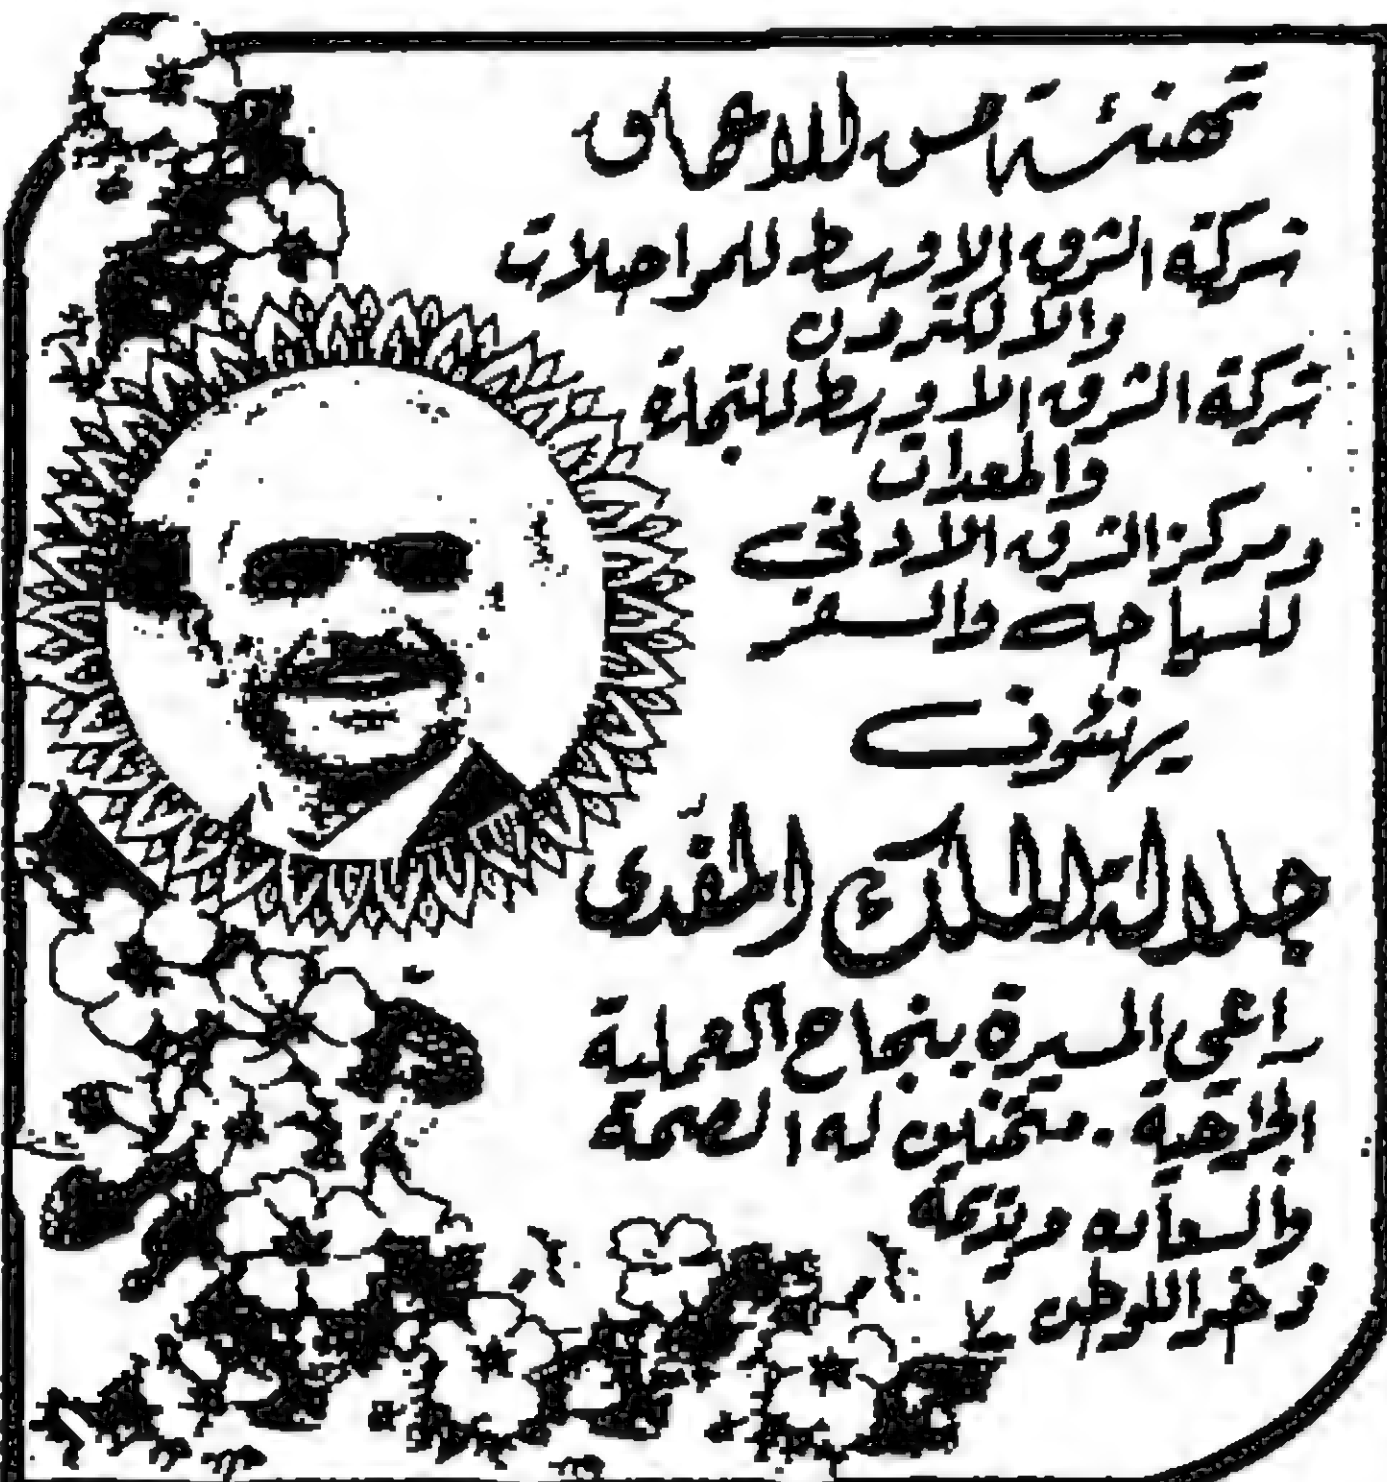 تهنئة من الاعماق
شركة الشرق الاوسط للمواصلات
والالكترون
شركة الشرق الاوسط للتجارة
والمعدات
ومركز الشرق الادنى
للسياحه والسفر
يهنئون
جلالة الملك المفدى
راعي المسيرة بنجاح العملية
الجراحية . متمنين له الصحة
والسعاده ويديمه
ذخرا للوطن